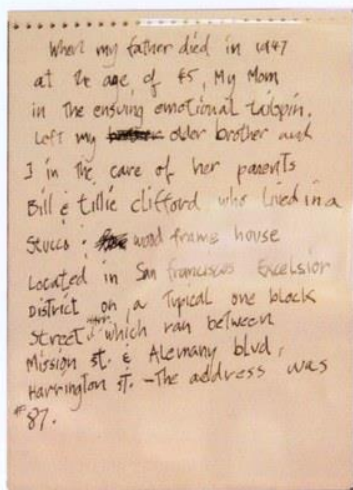 When my father died in 1947
at the age of 45, My Mom
in the ensuing emotional tailspin.
Left my older brother and
I in the care of her parents
Bill & Tillie Clifford who Lived in a
Stucco & wood frame house
Located in San Franciscos Excelsior
District on a Typical one block
Street which ran between
Mission St. & Alemany blvd,
Harrington St. - The address was
#87.